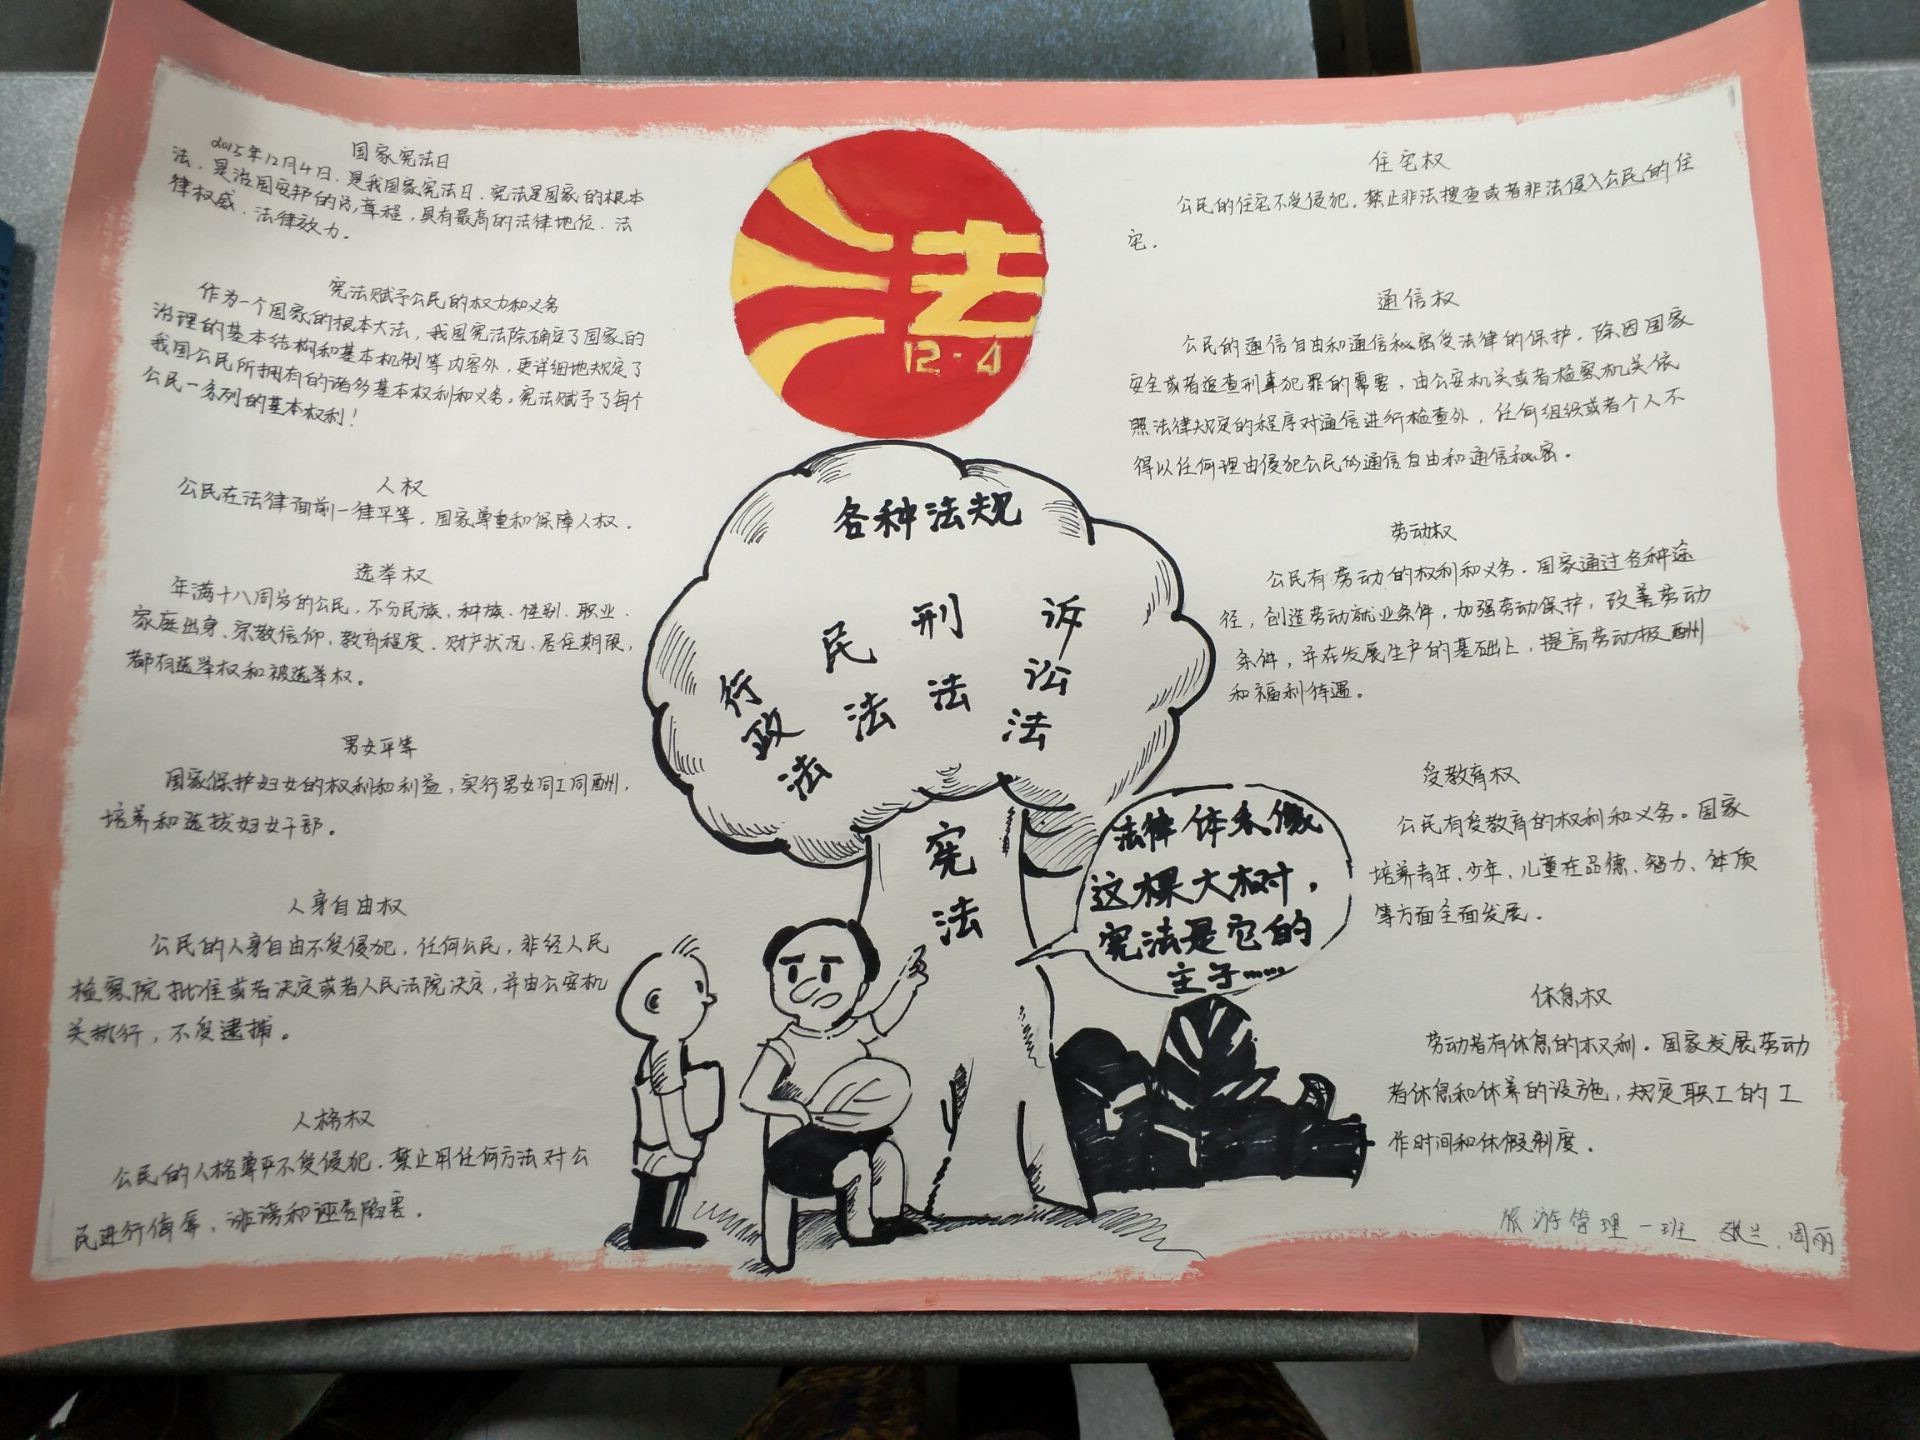 国家宪法日
2015年12月4日，是我国家宪法日，宪法是国家的根本
法，是治国安邦的总章程，具有最高的法律地位、法
律权威、法律效力。
宪法赋予公民的权力和义务
作为一个国家的根本大法，我国宪法除确定了国家的
治理的基本结构和基本机制等内容外，更详细地规定了
我国公民所拥有的诸多基本权利和义务。宪法赋予了每个
公民一系列的基本权利！
人权
公民在法律面前一律平等，国家尊重和保障人权．
选举权
年满十八周岁的公民，不分民族、种族、性别、职业、
家庭出身、宗教信仰、教育程度、财产状况、居住期限，
都有选举权和被选举权。
男女平等
国家保护妇女的权利和利益，实行男女同工同酬，
培养和选拔妇女干部。
人身自由权
公民的人身自由不受侵犯，任何公民，非经人民
检察院批准或者决定或者人民法院决定，并由公安机
关执行，不受逮捕。
人格权
公民的人格尊严不受侵犯．禁止用任何方法对公
民进行侮辱、诽谤和诬告陷害．
法
12·4
各种法规
行政法
民法
刑法
诉讼法
宪法
法律体系像
这棵大树，
宪法是它的
主子……
住宅权
公民的住宅不受侵犯．禁止非法搜查或者非法侵入公民的住
宅．
通信权
公民的通信自由和通信秘密受法律的保护．除因国家
安全或者追查刑事犯罪的需要，由公安机关或者检察机关依
照法律规定的程序对通信进行检查外，任何组织或者个人不
得以任何理由侵犯公民的通信自由和通信秘密。
劳动权
公民有劳动的权利和义务．国家通过各种途
径，创造劳动就业条件，加强劳动保护，改善劳动
条件，并在发展生产的基础上，提高劳动报酬
和福利待遇。
受教育权
公民有受教育的权利和义务。国家
培养青年、少年、儿童在品德、智力、体质
等方面全面发展．
休息权
劳动者有休息的权利．国家发展劳动
者休息和休养的设施，规定职工的工
作时间和休假制度．
旅游管理一班 张兰、周丽